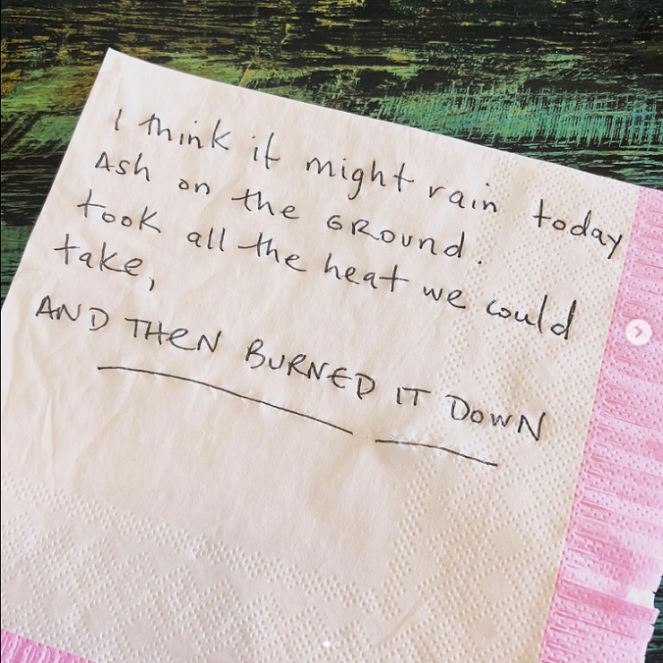 I think it might rain today
Ash on the GROUND.
took all the heat we could
take,
AND THEN BURNED IT DOWN